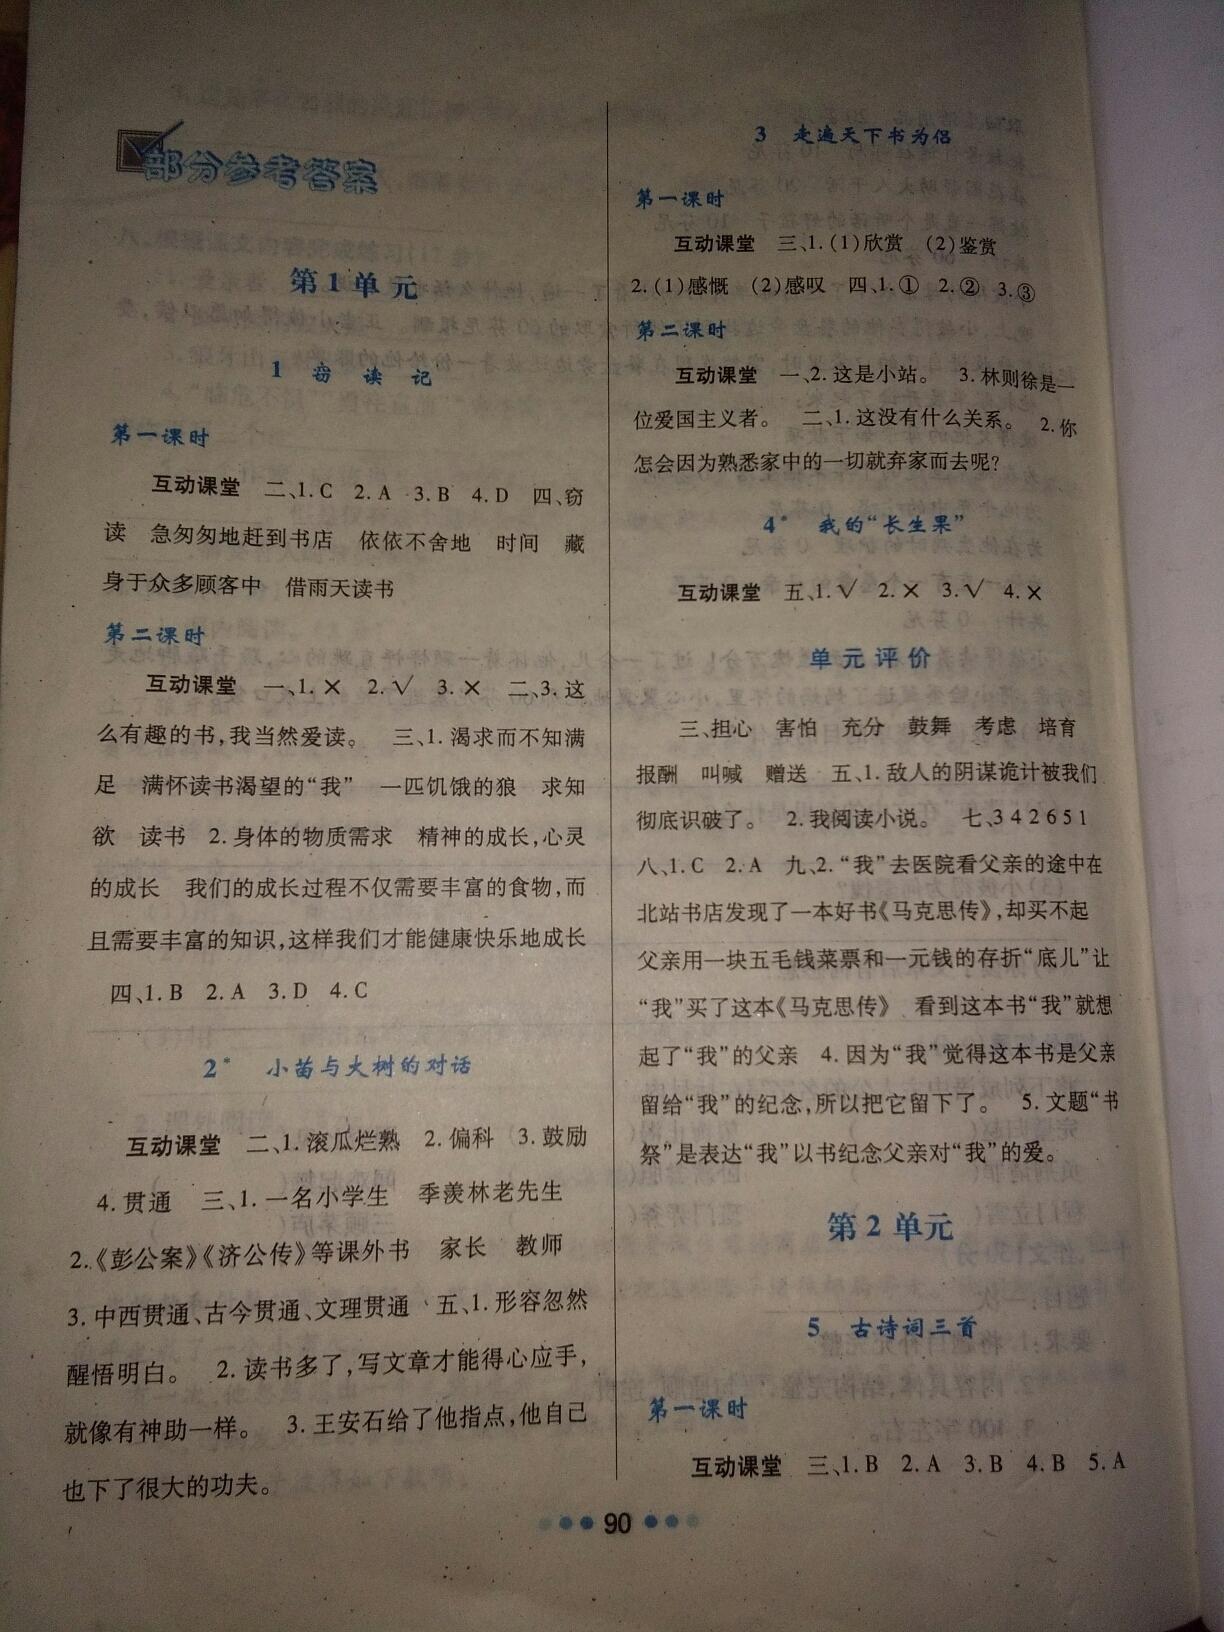 部分参考答案
第1单元
1 窃读记
第一课时
互动课堂 二、1.C 2.A 3.B 4.D 四、窃
读 急匆匆地赶到书店 依依不舍地 时间 藏
身于众多顾客中 借雨天读书
第二课时
互动课堂 一、1.× 2.√ 3.× 二、3.这
么有趣的书,我当然爱读。 三、1.渴求而不知满
足 满怀读书渴望的“我” 一匹饥饿的狼 求知
欲 读书 2.身体的物质需求 精神的成长,心灵
的成长 我们的成长过程不仅需要丰富的食物,而
且需要丰富的知识,这样我们才能健康快乐地成长
四、1.B 2.A 3.D 4.C
2* 小苗与大树的对话
互动课堂 二、1.滚瓜烂熟 2.偏科 3.鼓励
4.贯通 三、1.一名小学生 季羡林老先生
2.《彭公案》《济公传》等课外书 家长 教师
3.中西贯通、古今贯通、文理贯通 五、1.形容忽然
醒悟明白。 2.读书多了,写文章才能得心应手,
就像有神助一样。 3.王安石给了他指点,他自己
也下了很大的功夫。
3 走遍天下书为侣
第一课时
互动课堂 三、1.(1)欣赏 (2)鉴赏
2.(1)感慨 (2)感叹 四、1.① 2.② 3.③
第二课时
互动课堂 一、2.这是小站。 3.林则徐是一
位爱国主义者。 二、1.这没有什么关系。 2.你
怎会因为熟悉家中的一切就弃家而去呢?
4* 我的“长生果”
互动课堂 五、1.√ 2.× 3.√ 4.×
单元评价
三、担心 害怕 充分 鼓舞 考虑 培育
报酬 叫喊 赠送 五、1.敌人的阴谋诡计被我们
彻底识破了。 2.我阅读小说。 七、3 4 2 6 5 1
八、1.C 2.A 九、2.“我”去医院看父亲的途中在
北站书店发现了一本好书《马克思传》,却买不起
父亲用一块五毛钱菜票和一元钱的存折“底儿”让
“我”买了这本《马克思传》 看到这本书“我”就想
起了“我”的父亲 4.因为“我”觉得这本书是父亲
留给“我”的纪念,所以把它留下了。 5.文题“书
祭”是表达“我”以书纪念父亲对“我”的爱。
第2单元
5 古诗词三首
第一课时
互动课堂 三、1.B 2.A 3.B 4.B 5.A
90